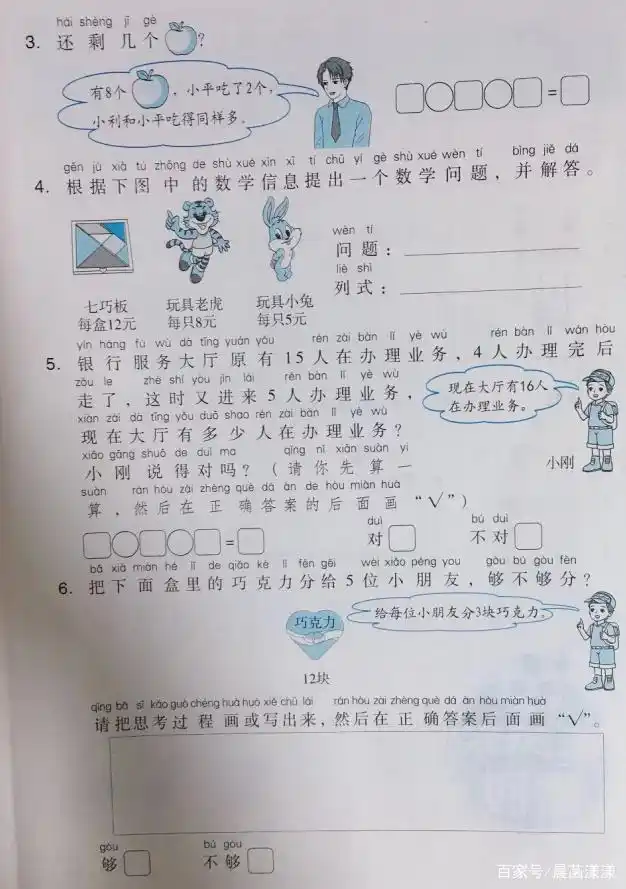 hái shèng jǐ gè
3. 还剩几个?
有8个，小平吃了2个，
小利和小平吃得同样多。
□○□○□=□
gēn jù xià tú zhōng de shù xué xìn xī tí chū yí gè shù xué wèn tí bìng jiě dá
4. 根据下图中的数学信息提出一个数学问题，并解答。
wèn tí
问题：
liè shì
列式：
七巧板 玩具老虎 玩具小兔
每盒12元 每只8元 每只5元
yín háng fú wù dà tīng yuán yǒu rén zài bàn lǐ yè wù rén bàn lǐ wán hòu
5. 银行服务大厅原有15人在办理业务，4人办理完后
zǒu le zhè shí yòu jìn lái rén bàn lǐ yè wù
走了，这时又进来5人办理业务，
xiàn zài dà tīng yǒu duō shao rén zài bàn lǐ yè wù
现在大厅有多少人在办理业务？
现在大厅有16人
在办理业务。
小刚
xiǎo gāng shuō de duì ma qǐng nǐ xiān suàn yi
小刚说得对吗？（请你先算一
suàn rán hòu zài zhèng què dá àn de hòu miàn huà
算，然后在正确答案的后面画“√”）
duì bú duì
□○□○□=□ 对□ 不对□
bǎ xià miàn hé lǐ de qiǎo kè lì fēn gěi wèi xiǎo péng you gòu bú gòu fēn
6. 把下面盒里的巧克力分给5位小朋友，够不够分？
巧克力
给每位小朋友分3块巧克力。
12块
qǐng bǎ sī kǎo guò chéng huà huò xiě chū lái rán hòu zài zhèng què dá àn hòu miàn huà
请把思考过程画或写出来，然后在正确答案后面画“√”。
gòu bú gòu
够□ 不够□
百家号/晨菡漾漾